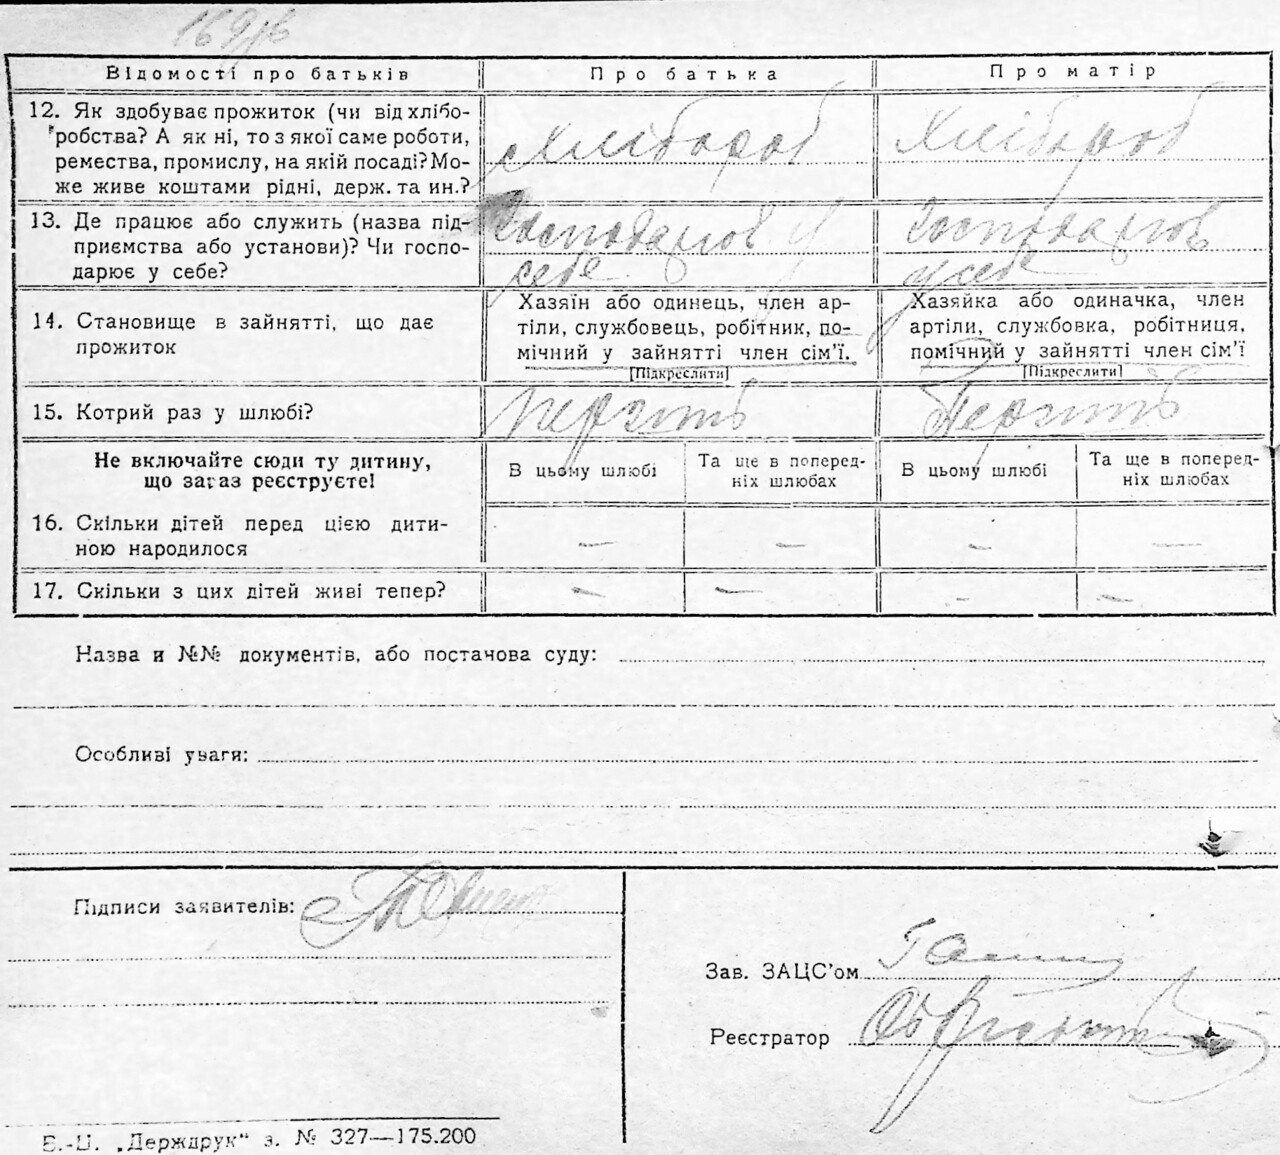 169/ів
Відомості про батьків
Про батька
Про матір
12. Як здобуває прожиток (чи від хлібо-
робства? А як ні, то з якої саме роботи,
ремества, промислу, на якій посаді? Мо-
же живе коштами рідні, держ. та ин.?
Хлібороб
Хлібороб
13. Де працює або служить (назва під-
приємства або установи)? Чи госпо-
дарює у себе?
Господарює у
себе
Господарює
у себе
14. Становище в зайнятті, що дає
прожиток
Хазяїн або одинець, член ар-
тіли, службовець, робітник, по-
мічний у зайнятті член сім’ї.
[Підкреслити]
Хазяйка або одиначка, член
артіли, службовка, робітниця,
помічний у зайнятті член сім’ї
[Підкреслити]
15. Котрий раз у шлюбі?
Не включайте сюди ту дитину,
що зараз реєструєте!
В цьому шлюбі
Та ще в поперед-
ніх шлюбах
В цьому шлюбі
Та ще в поперед-
ніх шлюбах
16. Скільки дітей перед цією дити-
ною народилося
— — — —
17. Скільки з цих дітей живі тепер?
— — — —
Назва и №№ документів, або постанова суду:
Особливі уваги:
Підписи заявителів:
Зав. ЗАЦС’ом
Реєстратор
„Держдрук“ з. № 327—175.200